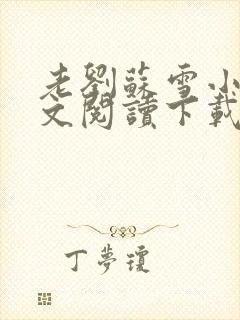 老劉蘇雪小
文閱讀下載
丁夢瓊